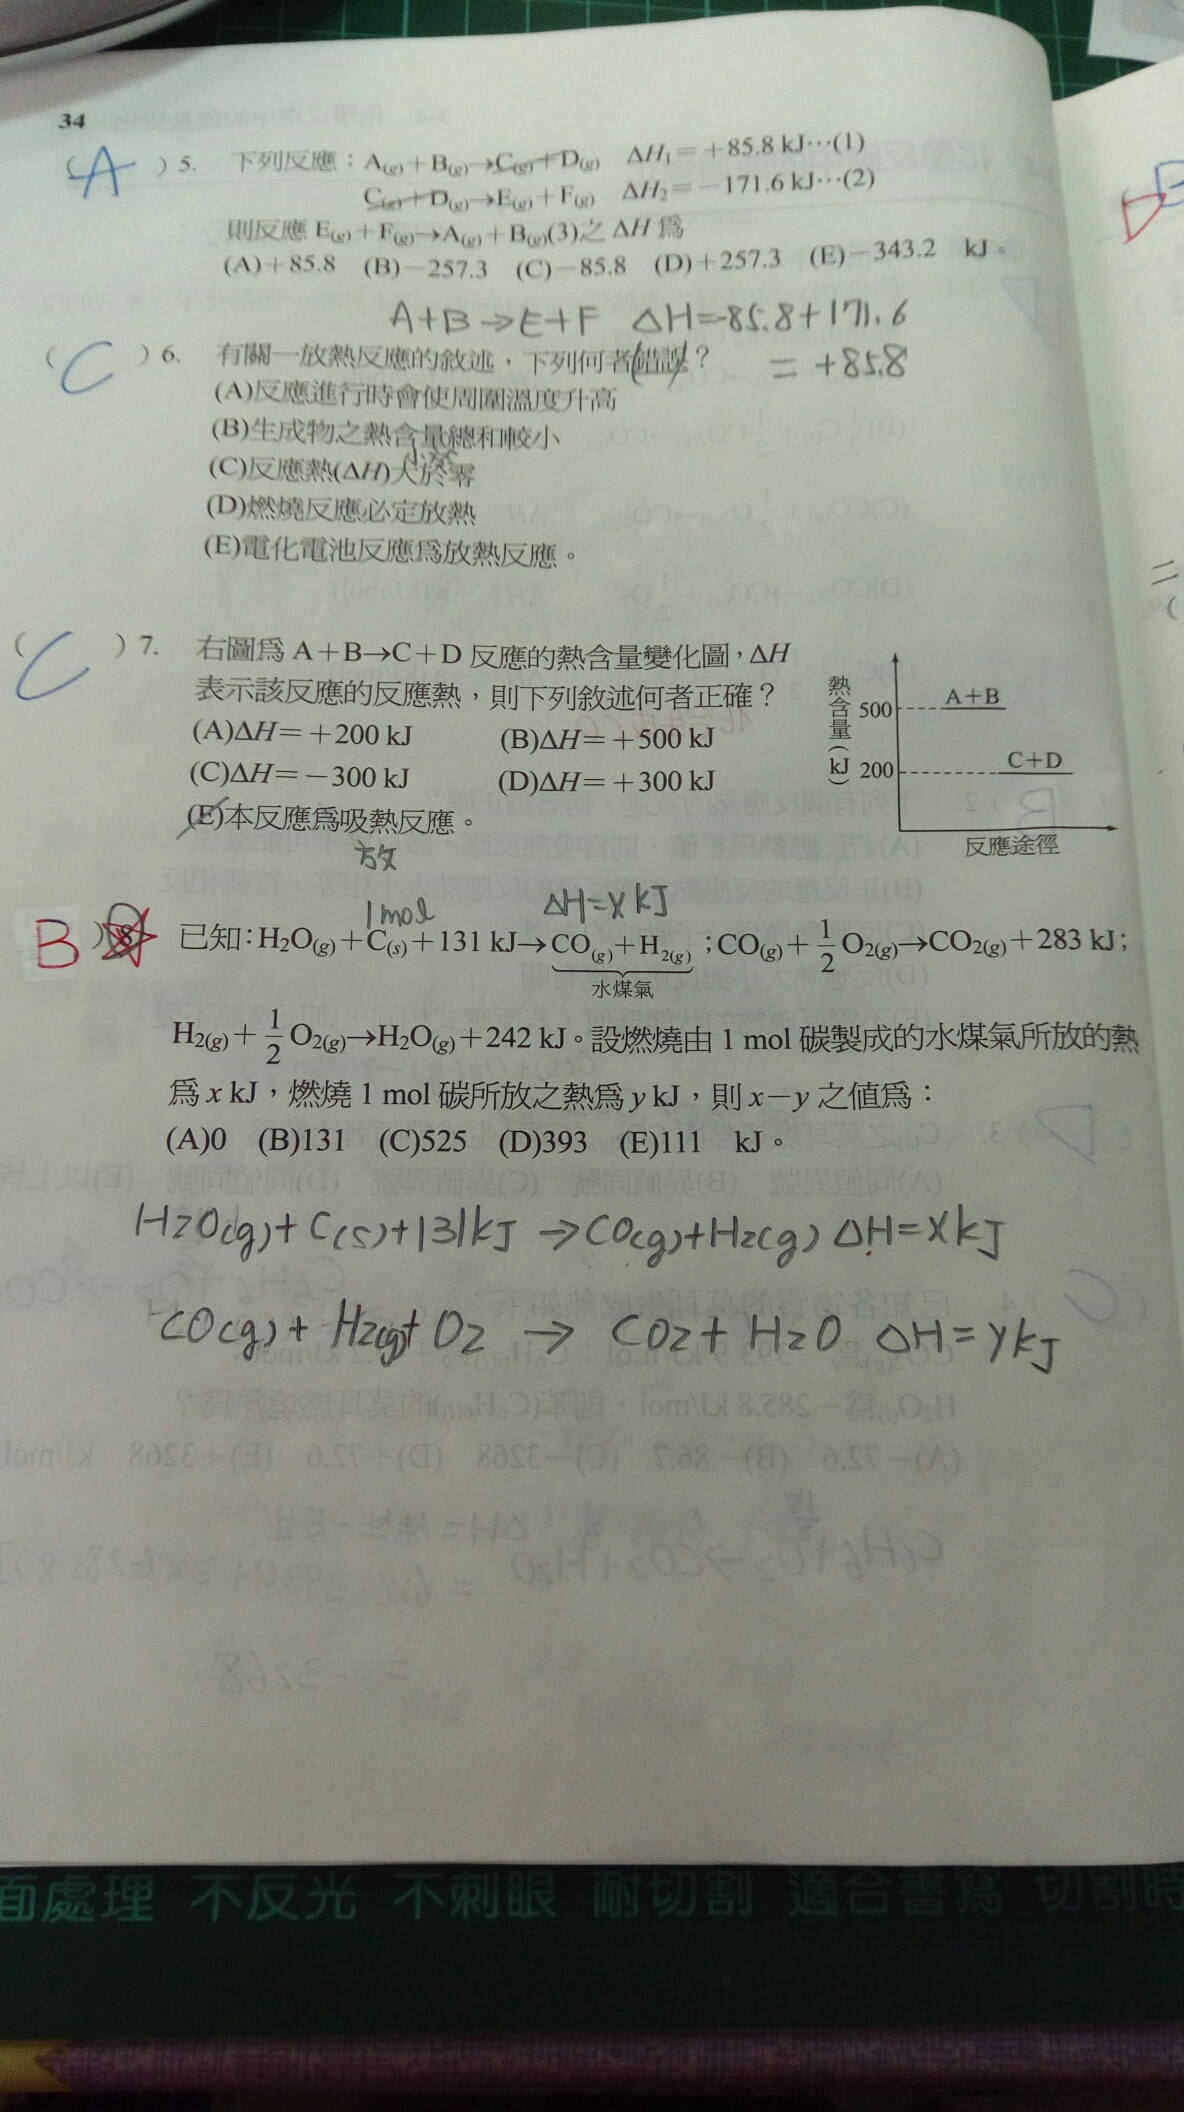 34
(A)5. 下列反應：A(g)+B(g)→C(g)+D(g) ΔH₁=+85.8 kJ⋯(1)
C(g)+D(g)→E(g)+F(g) ΔH₂=−171.6 kJ⋯(2)
則反應 E(g)+F(g)→A(g)+B(g)(3)之 ΔH 為
(A)+85.8 (B)−257.3 (C)−85.8 (D)+257.3 (E)−343.2 kJ。
A+B→E+F ΔH=-85.8+171.6
= +85.8
(C)6. 有關一放熱反應的敘述，下列何者錯誤？
(A)反應進行時會使周圍溫度升高
(B)生成物之熱含量總和較小
小於
(C)反應熱(ΔH)大於零
(D)燃燒反應必定放熱
(E)電化電池反應為放熱反應。
(C)7. 右圖為 A+B→C+D 反應的熱含量變化圖，ΔH
表示該反應的反應熱，則下列敘述何者正確？
(A)ΔH=+200 kJ (B)ΔH=+500 kJ
(C)ΔH=−300 kJ (D)ΔH=+300 kJ
(E)本反應為吸熱反應。
放
熱含量(kJ)
500 A+B
200 C+D
反應途徑
1mol ΔH=x kJ
B)8. 已知：H₂O(g)+C(s)+131 kJ→CO(g)+H₂(g)；CO(g)+1/2 O₂(g)→CO₂(g)+283 kJ；
水煤氣
H₂(g)+1/2 O₂(g)→H₂O(g)+242 kJ。設燃燒由 1 mol 碳製成的水煤氣所放的熱
為 x kJ，燃燒 1 mol 碳所放之熱為 y kJ，則 x−y 之值為：
(A)0 (B)131 (C)525 (D)393 (E)111 kJ。
H2O(g)+C(s)+131kJ→CO(g)+H2(g) ΔH=xkJ
CO(g)+H2(g)+O2→CO2+H2O ΔH=ykJ
面處理 不反光 不刺眼 耐切割 適合書寫 切割時